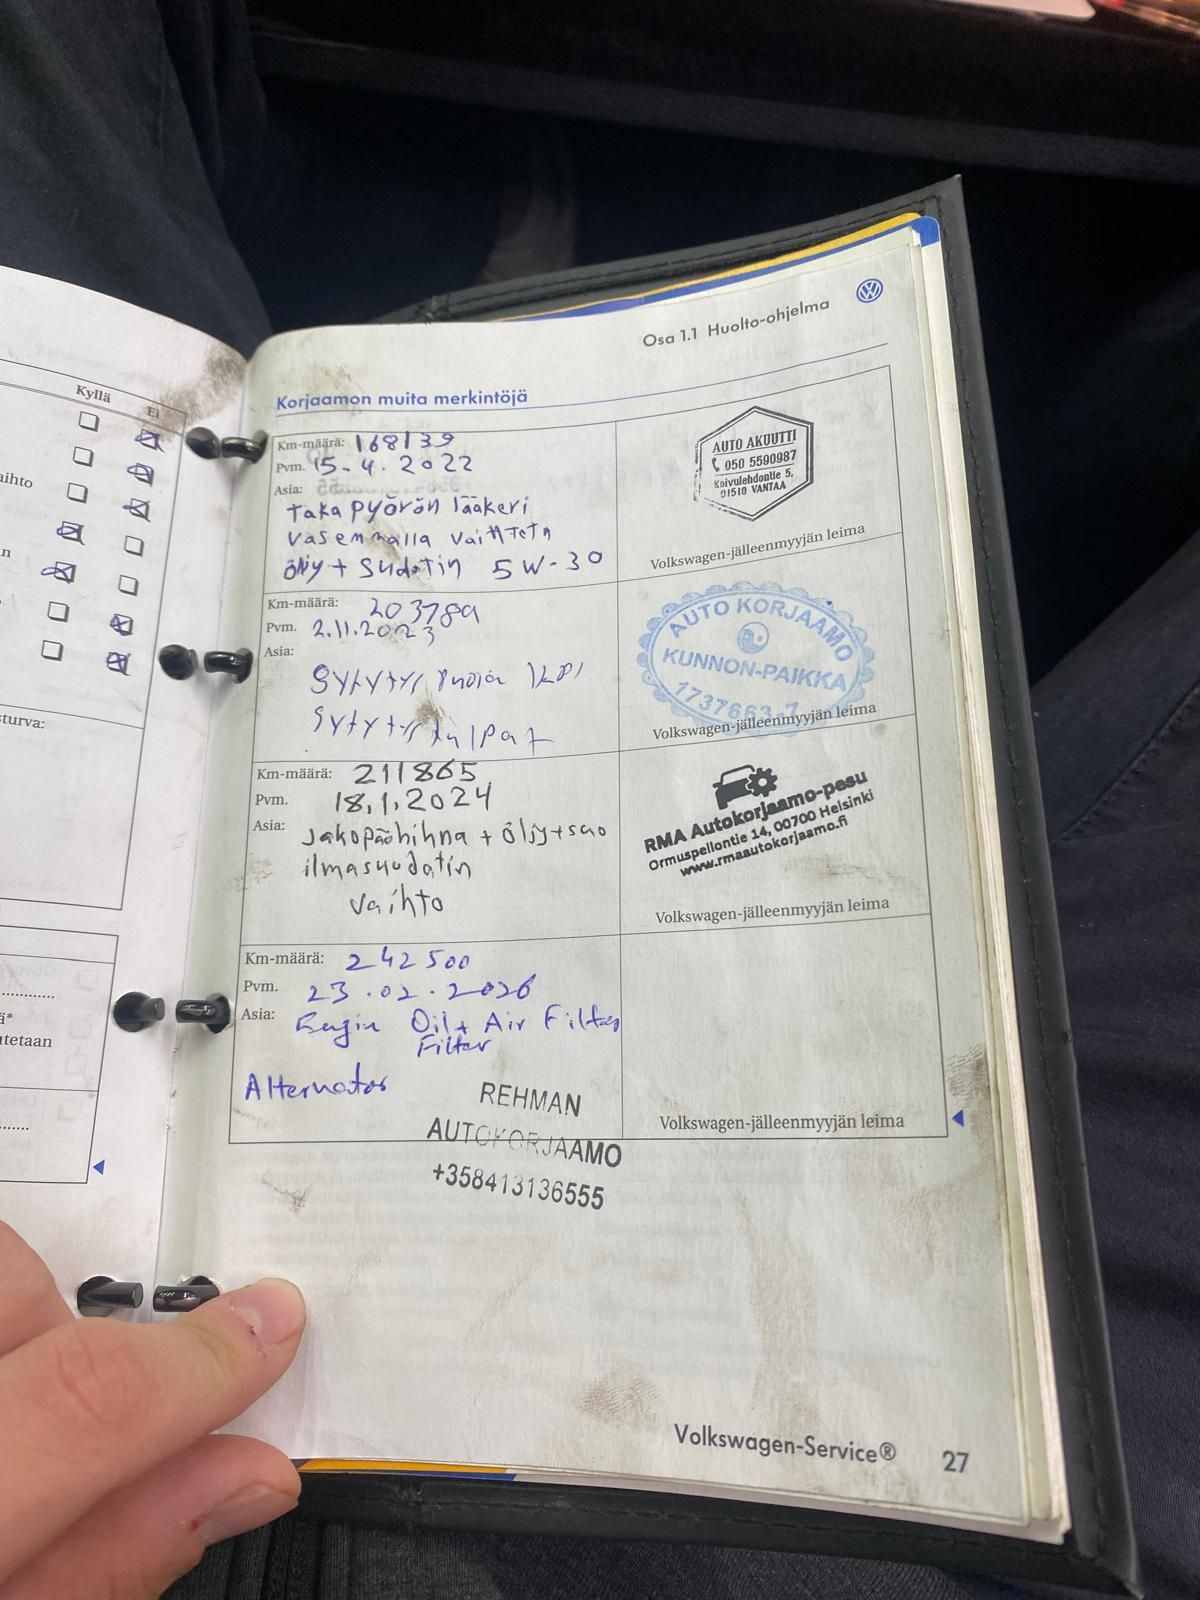 Kyllä
Ei
aihto
n
sturva:
ä*
utetaan
Osa 1.1 Huolto-ohjelma
Korjaamon muita merkintöjä
Km-määrä: 168139
Pvm. 15.4.2022
Asia:
taka pyörön lääkeri
vasemmalla vaihteth
öljy + Sudatin 5W-30
AUTO AKUUTTI
050 5590987
Koivulehdontie 5,
01510 VANTAA
Volkswagen-jälleenmyyjän leima
Km-määrä: 203789
Pvm. 2.11.2023
Asia:
Sytytys puola 1kpl
Sytytys tulpat
AUTO KORJAAMO
KUNNON-PAIKKA
1737663-7
Volkswagen-jälleenmyyjän leima
Km-määrä: 211865
Pvm. 18.1.2024
Asia: Jakopäähihna + öljy+suo
ilmasuodatin
vaihto
RMA Autokorjaamo-pesu
Ormuspellontie 14, 00700 Helsinki
www.rmaautokorjaamo.fi
Volkswagen-jälleenmyyjän leima
Km-määrä: 242500
Pvm. 23.02.2026
Asia: Engin Oil + Air Filter
Filter
Alternator
REHMAN
AUTOKORJAAMO
+358413136555
Volkswagen-jälleenmyyjän leima
Volkswagen-Service® 27